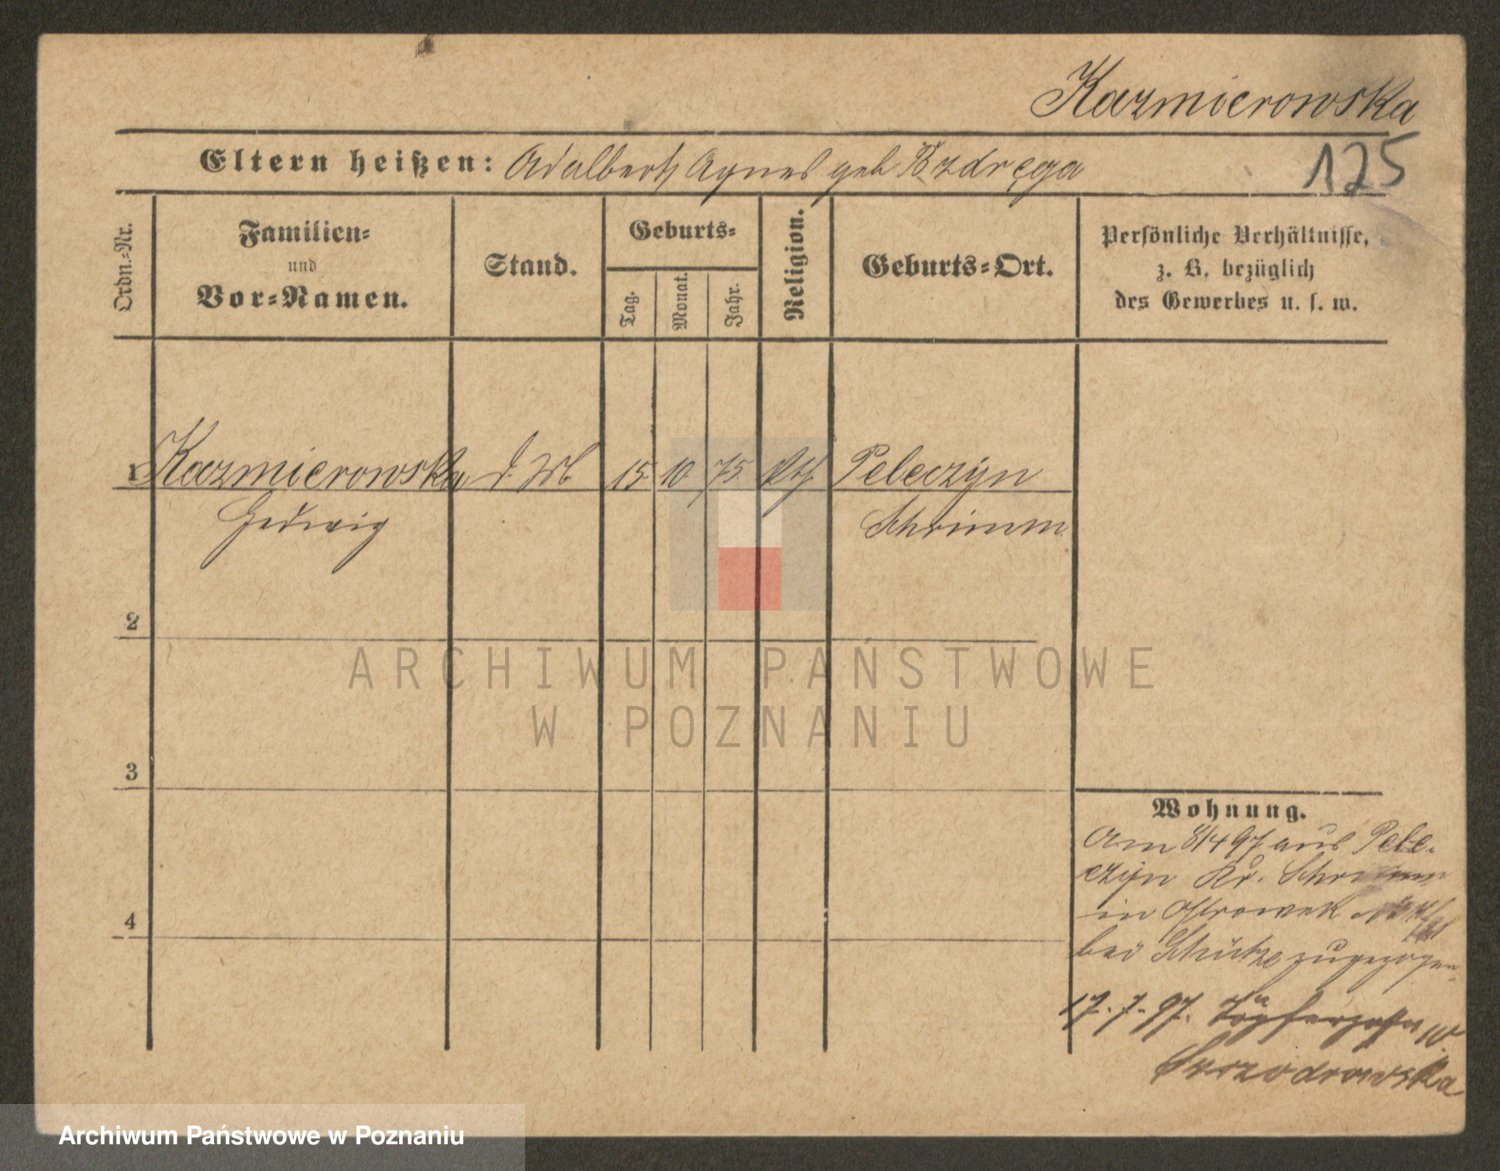 Kazmierowska
125
Eltern heißen: Adalbert Agnes geb Bzdręga
Ordn.-Nr.
Familien-
und
Vor-Namen.
Stand.
Geburts-
Tag.
Monat.
Jahr.
Religion.
Geburts-Ort.
Persönliche Verhältnisse,
z. B. bezüglich
des Gewerbes u. s. w.
1 Kazmierowska 15 10 75 Kth Peleczyn
Hedwig Schrimm
2
3
4
Wohnung.
Am 8/4 97 aus Pele-
czyn Kr. Schrimm
in Ostrowek
bei Schütze zugezogen
17.7.97. Töpfergasse 10
ARCHIWUM PAŃSTWOWE
W POZNANIU
Archiwum Państwowe w Poznaniu